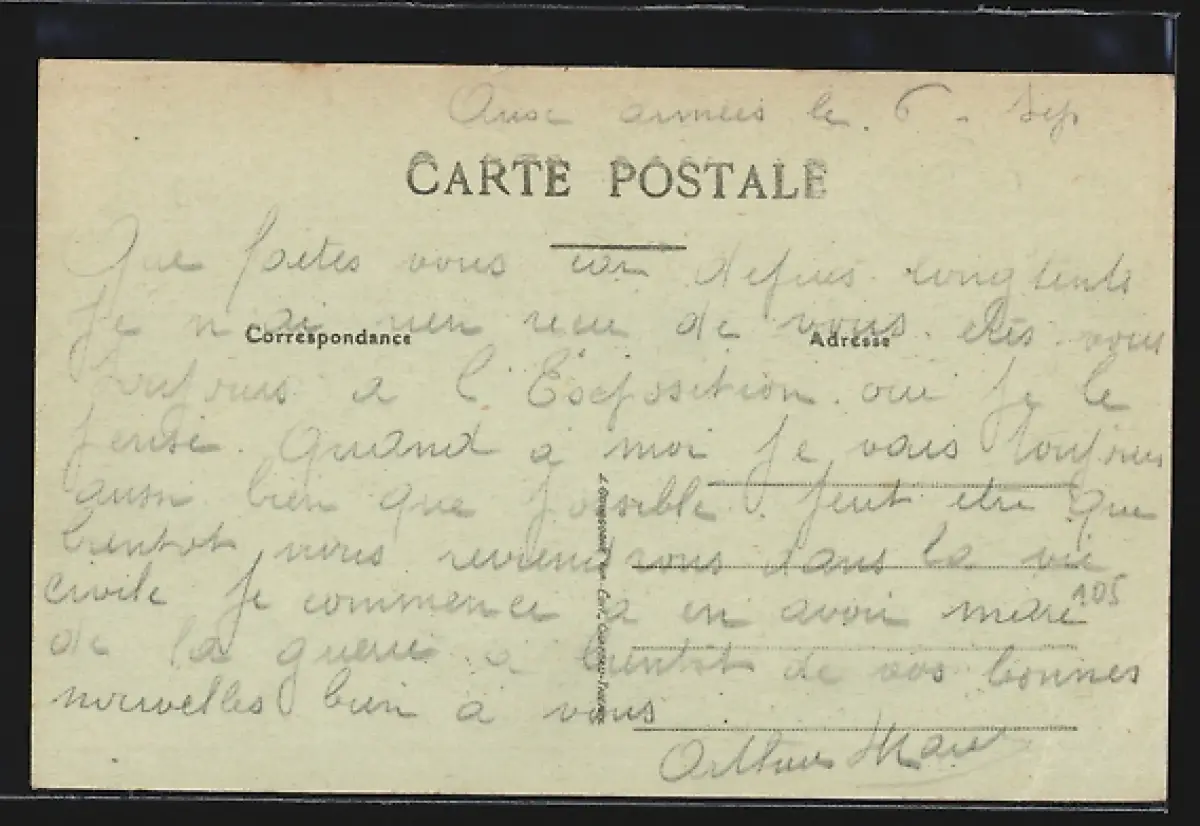 Aux armées le 6 - Sep
CARTE POSTALE
Que faites vous car depuis longtents
Je n ai rien recu de vous. etes vous
Correspondance
Adresse
toujours a l'Exposition. oui je le
pense. Quand a moi Je vais toujours
aussi bien que possible. peut etre que
bientot nous reviendrons dans la vie
civile Je commence a en avoir marre
105
de la guerre. a bientot de vos bonnes
nouvelles bien a vous
Arthur